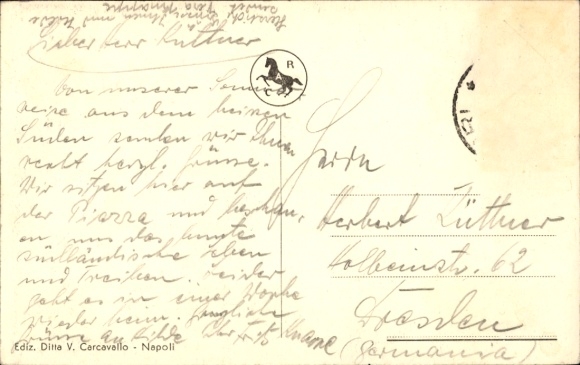 Lieber Herr Lüttner
Von unserer Sommer
reise aus dem heissen
Süden senden wir Ihnen
recht herzl. Grüsse.
Wir sitzen hier auf
der Piazza und beschau
en uns das bunte
südländische Leben
und Treiben. Leider
geht es in einer Woche
wieder heim. Herzliche
Grüsse an Hilde Ihr Fritz
Herzliche Grüsse Ihnen und
sendet
C R
Herrn
Herbert Lüttner
Holbeinstr. 62
Dresden
(Germania)
Ediz. Ditta V. Carcavallo - Napoli